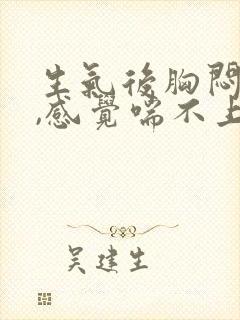 生氣後胸悶
,感覺喘不上
吴建生